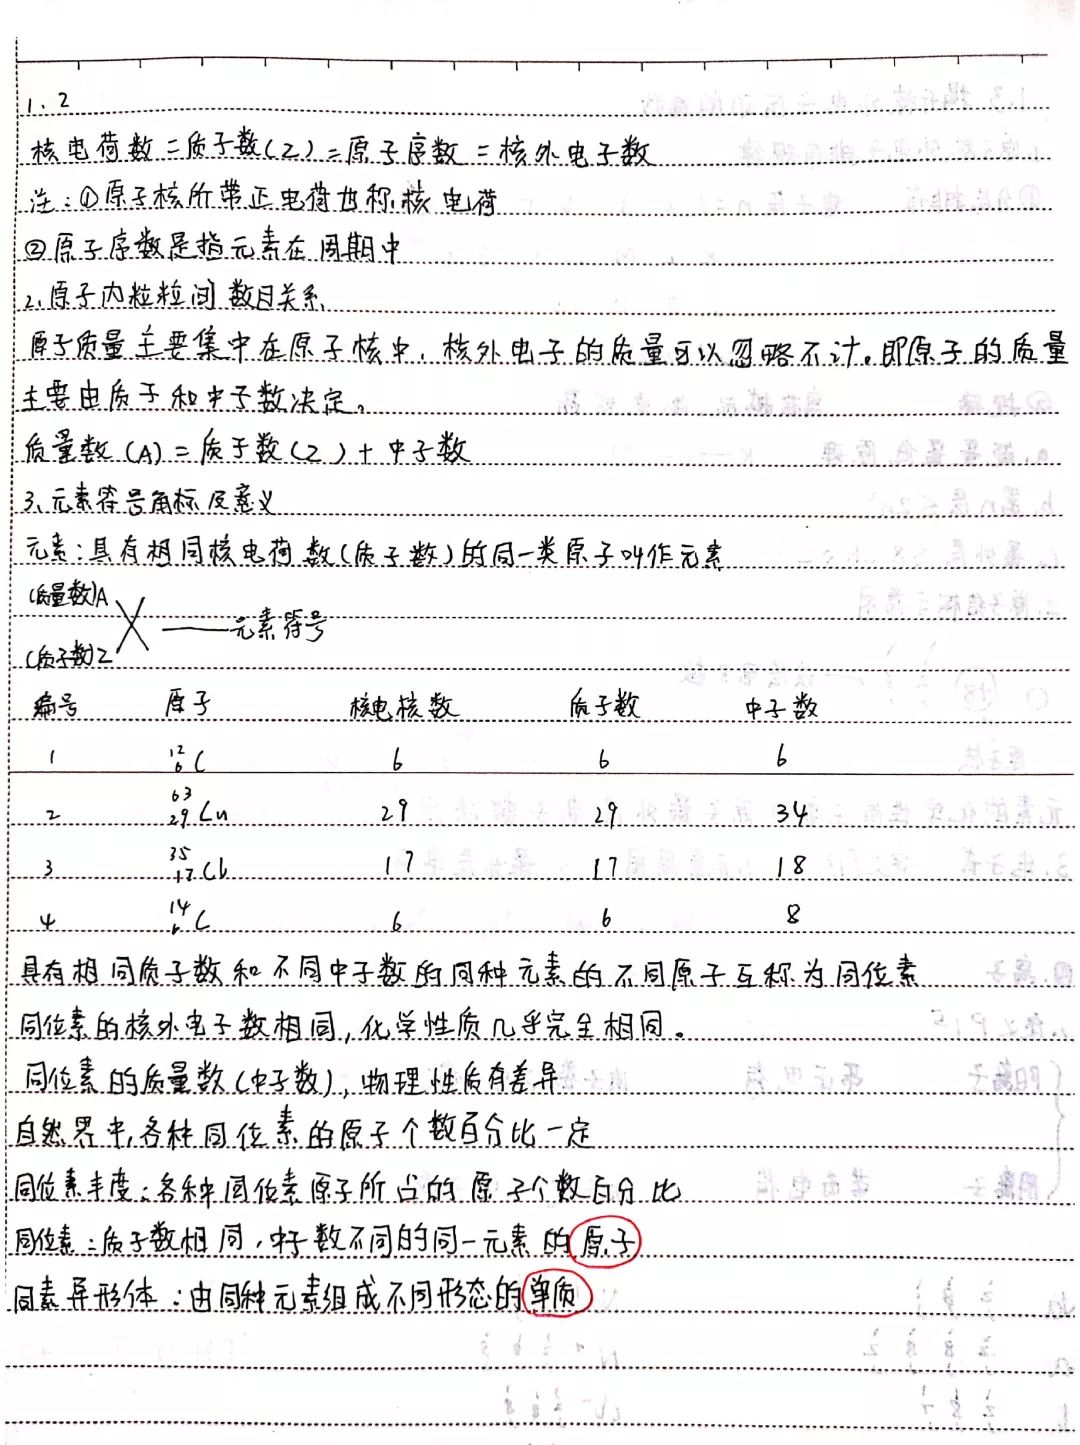 1、2
核电荷数=质子数(Z)=原子序数=核外电子数
注:①原子核所带正电荷也称核电荷
②原子序数是指元素在周期中
2.原子内粒粒间数目关系
原子质量主要集中在原子核中,核外电子的质量可以忽略不计。即原子的质量
主要由质子和中子数决定。
质量数(A)=质子数(Z)+中子数
3、元素符号角标及意义
元素:具有相同核电荷数(质子数)的同一类原子叫作元素
(质量数)A
X——元素符号
(质子数)Z
编号 原子 核电核数 质子数 中子数
1 ¹²₆C 6 6 6
2 ⁶³₂₉Cu 29 29 34
3 ³⁵₁₇Cl 17 17 18
4 ¹⁴₆C 6 6 8
具有相同质子数和不同中子数的同种元素的不同原子互称为同位素
同位素的核外电子数相同,化学性质几乎完全相同。
同位素的质量数(中子数),物理性质有差异
自然界中,各种同位素的原子个数百分比一定
同位素丰度:各种同位素原子所占的原子个数百分比
同位素:质子数相同,中子数不同的同一元素的原子
同素异形体:由同种元素组成不同形态的单质